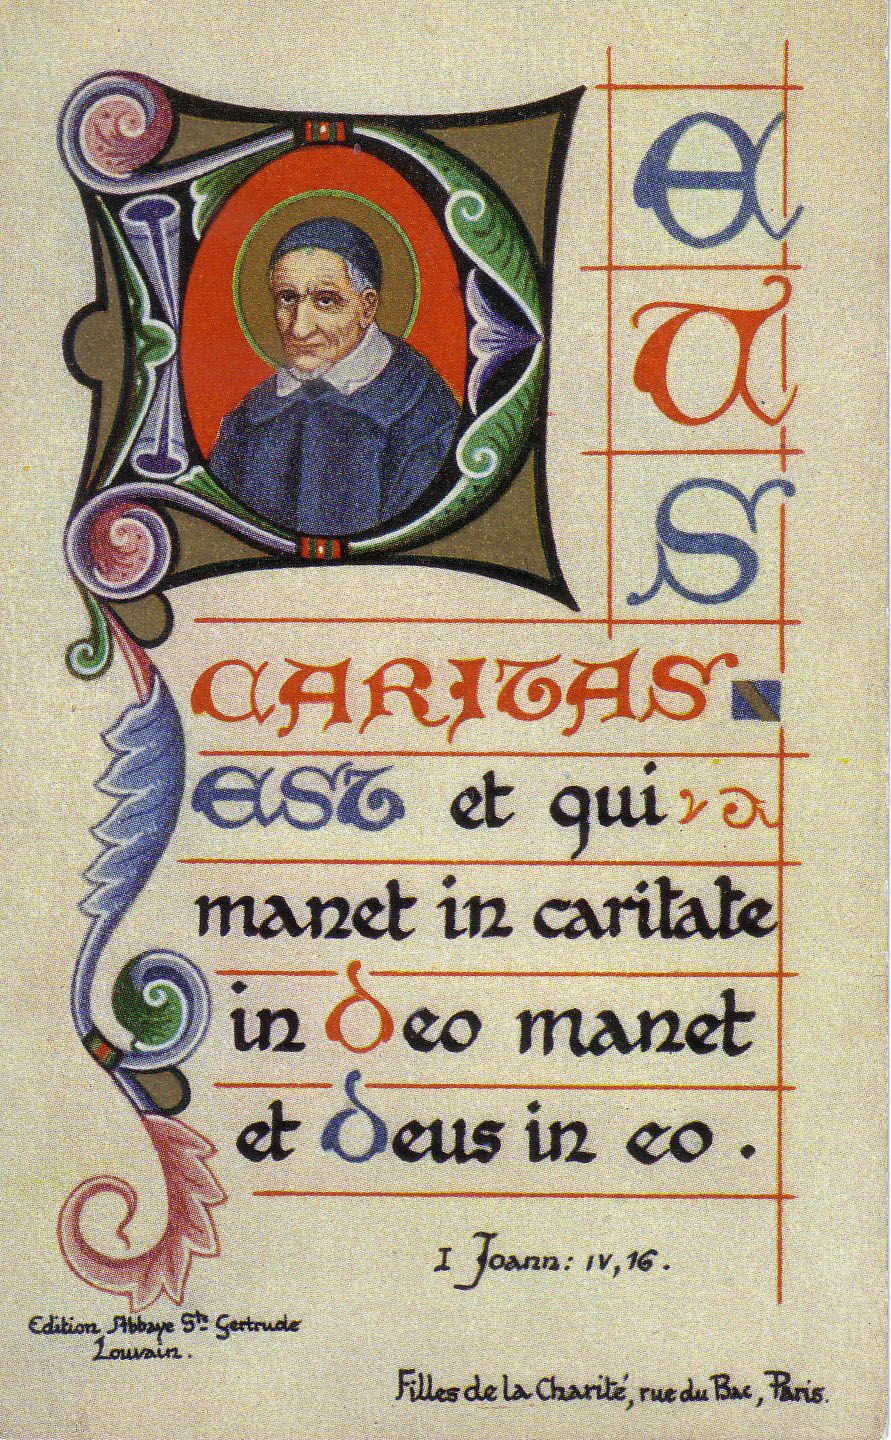 DEUS
CARITAS
EST et qui
manet in caritate
in Deo manet
et Deus in eo .
I Joann: IV, 16 .
Edition Abbaye Ste Gertrude
Louvain .
Filles de la Charité, rue du Bac, Paris.